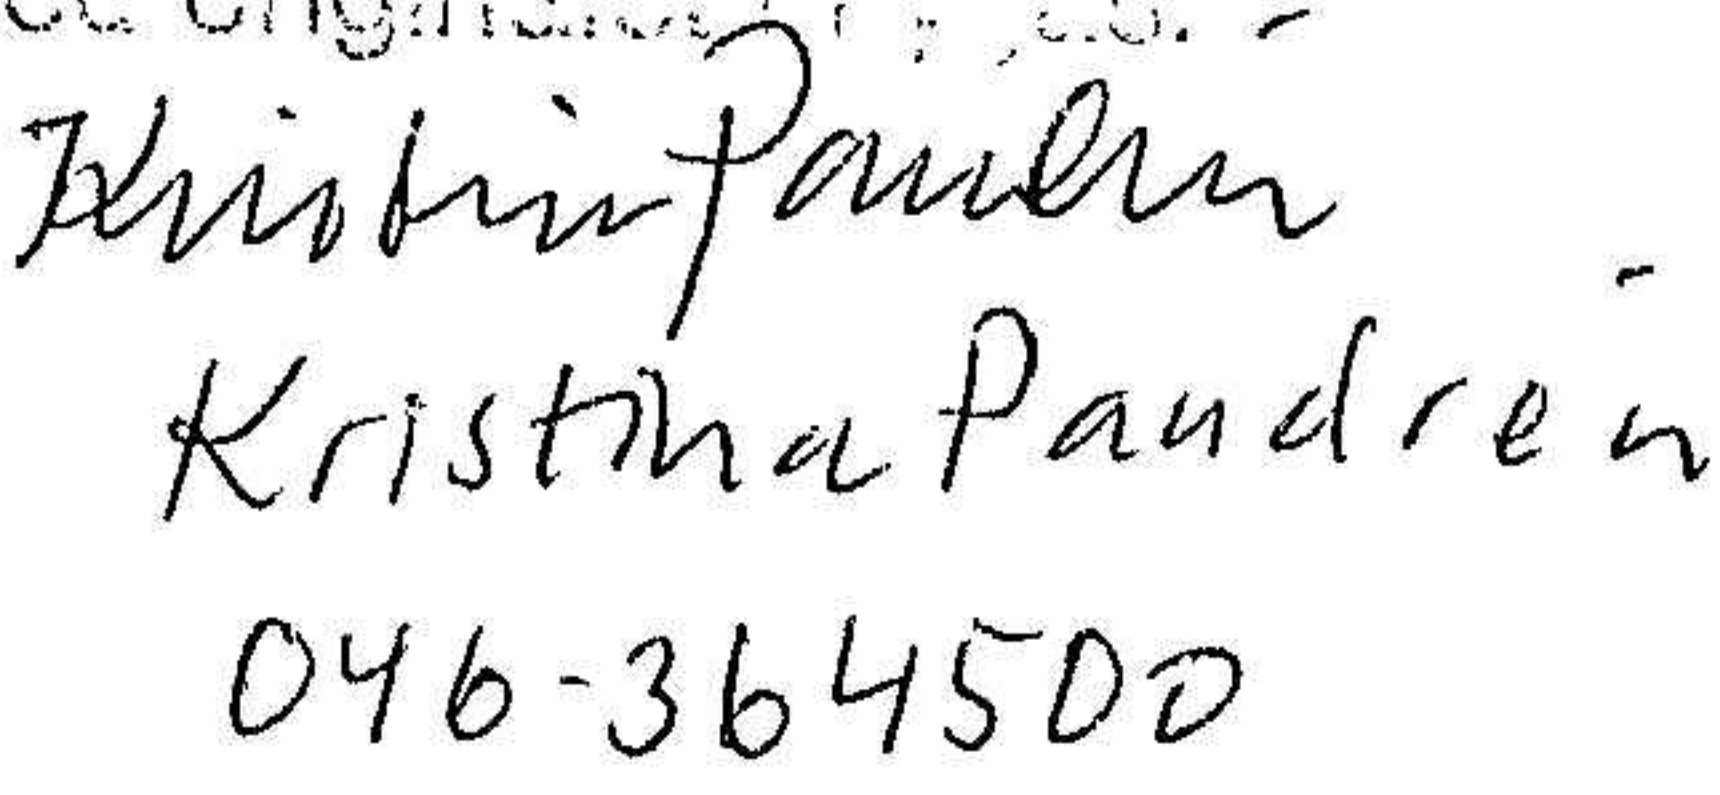 Kristina Paudrén
Kristina Paudrén
046-364500